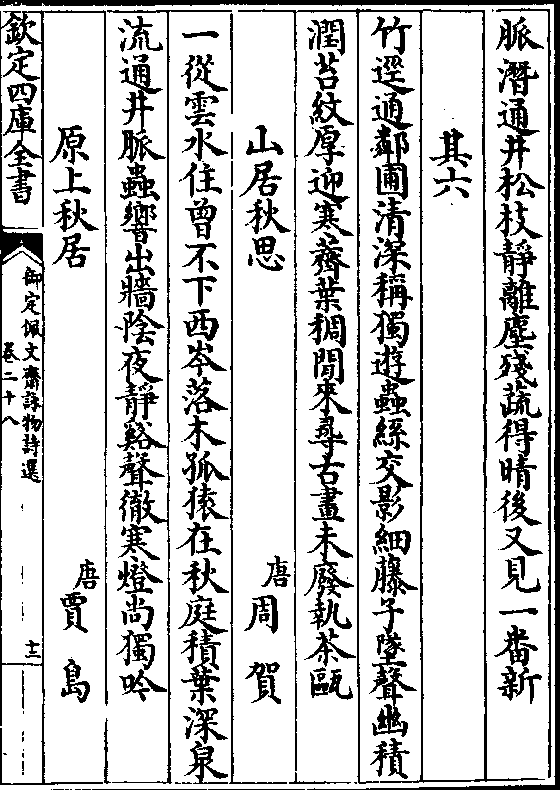 脈潛通井松枝靜離塵殘蔬得晴後又見一番新
其六
竹逕通鄰圃清深稱獨遊蟲絲交影細藤子墜聲幽積
潤苔紋厚迎寒薺葉稠閒來尋古畫未廢執茶甌
山居秋思
唐
周賀
一從雲水住曾不下西岑落木孤猿在秋庭積葉深泉
流通井脈蟲響出牆陰夜靜谿聲徹寒燈尚獨吟
原上秋居
唐
賈島
欽定四庫全書
御定佩文齋詠物詩選
卷二十八
十二